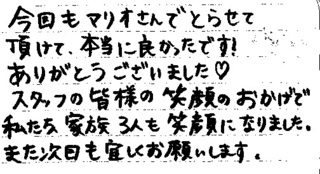 今回もマリオさんでとらせて
頂けて、本当に良かったです!
ありがとうございました♡
スタッフの皆様の笑顔のおかげで
私たち家族3人も笑顔になりました。
また次回も宜しくお願いします。